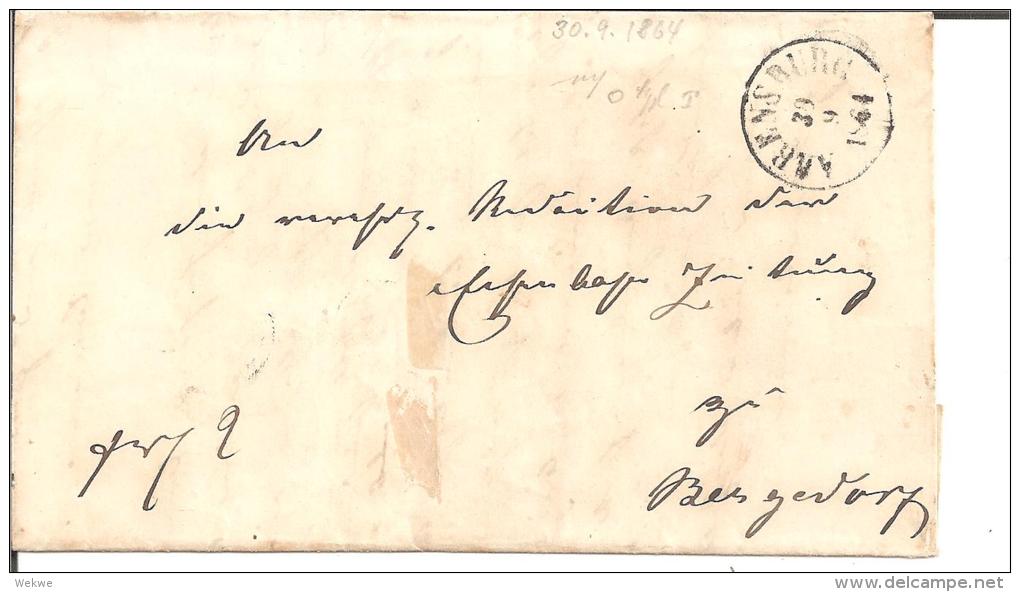 30.9.1864
AHRENSBURG
30
9
1864
An
die verehrl. Redaction der
Eisenbahn Zeitung
zu
Bergedorf
delcampe.net
Wekwe